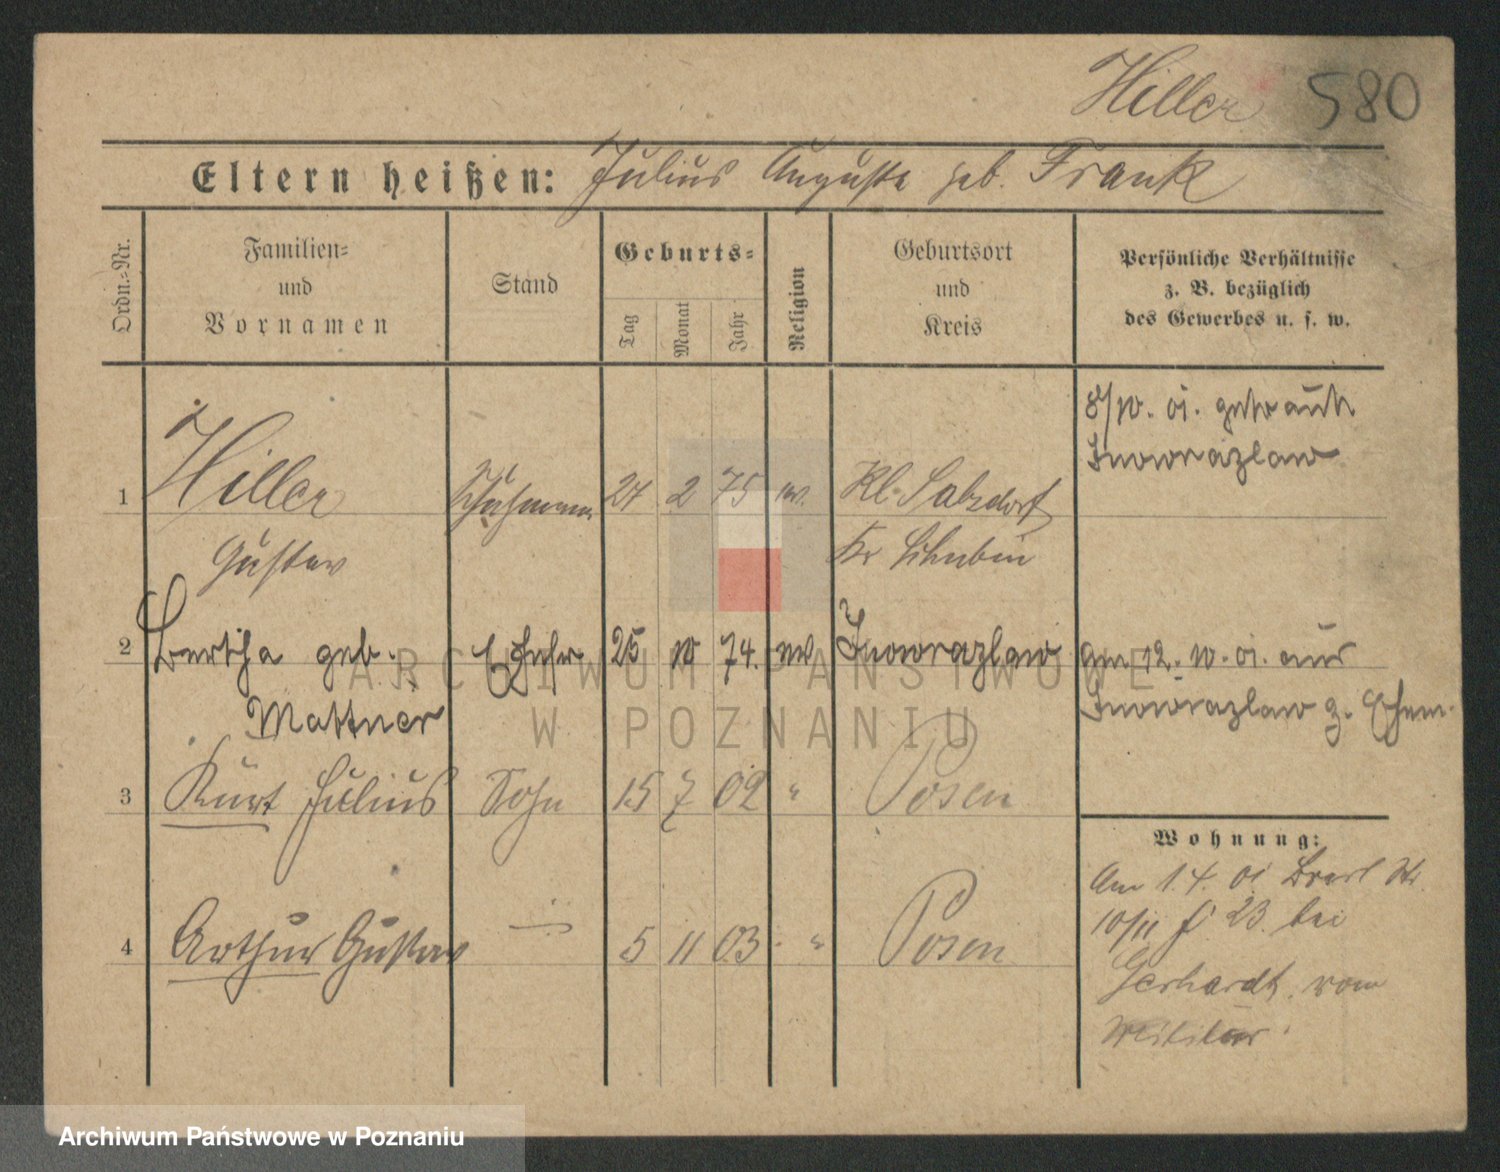 Hiller 580
Eltern heißen: Julius Auguste geb. Frank
Ordn.-Nr.
Familien-
und
Vornamen
Stand
Geburts-
Tag
Monat
Jahr
Religion
Geburtsort
und
Kreis
Persönliche Verhältnisse
z. B. bezüglich
des Gewerbes u. s. w.
8/10. 01. getraut
Inowrazlaw
1 Hiller Schutzmann 24 2 75 ev. Kl. Salzdorf
Gustav Kr Schubin
2 Bertha geb. Ehefr 25 10 74. ev Inowrazlaw am 12. 10. 01. aus
Mattner Inowrazlaw z. Ehem.
3 Kurt Julius Sohn 15 7 02 " Posen
Wohnung:
Am 1. 4. 01 Bresl. Str.
10/11 23. bei
4 Arthur Gustav 5 11 03 " Posen
Gerhardt. vom
Militär
ARCHIWUM PAŃSTWOWE
W POZNANIU
Archiwum Państwowe w Poznaniu